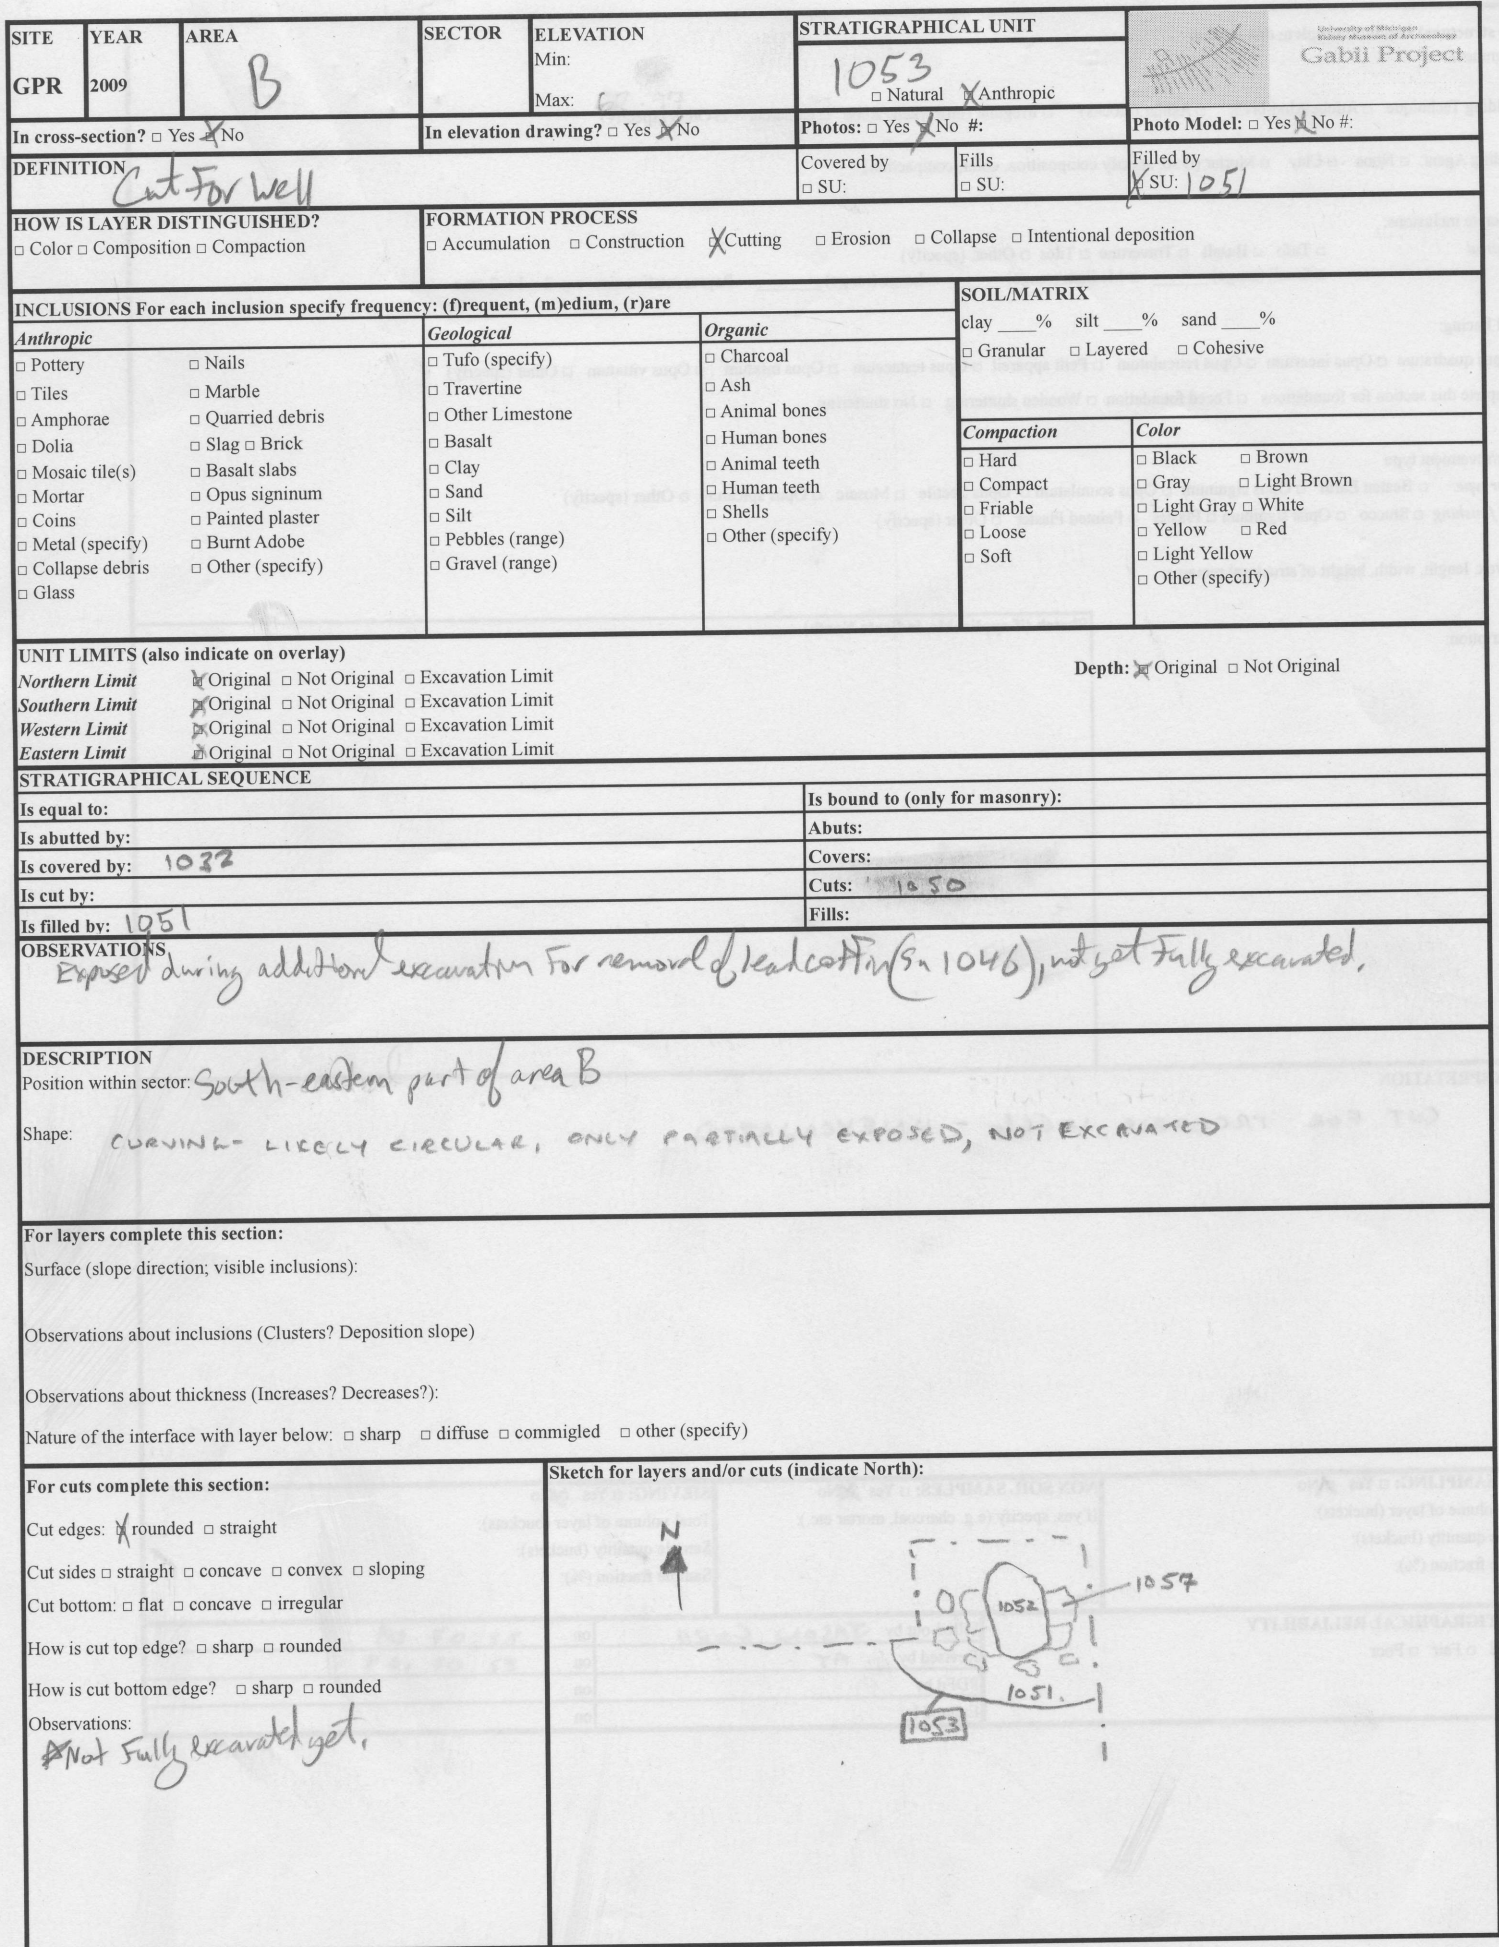 SITE YEAR AREA SECTOR ELEVATION STRATIGRAPHICAL UNIT
University of Michigan
Kelsey Museum of Archaeology
Gabii Project
GPR 2009 B Min: 1053
Max: □ Natural ☒ Anthropic
In cross-section? □ Yes ☒ No In elevation drawing? □ Yes ☒ No Photos: □ Yes ☒ No #: Photo Model: □ Yes ☒ No #:
DEFINITION Cut For Well Covered by □ SU: Fills □ SU: Filled by ☒ SU: 1051
HOW IS LAYER DISTINGUISHED? FORMATION PROCESS
□ Color □ Composition □ Compaction □ Accumulation □ Construction ☒ Cutting □ Erosion □ Collapse □ Intentional deposition
INCLUSIONS For each inclusion specify frequency: (f)requent, (m)edium, (r)are
Anthropic
□ Pottery □ Nails
□ Tiles □ Marble
□ Amphorae □ Quarried debris
□ Dolia □ Slag □ Brick
□ Mosaic tile(s) □ Basalt slabs
□ Mortar □ Opus signinum
□ Coins □ Painted plaster
□ Metal (specify) □ Burnt Adobe
□ Collapse debris □ Other (specify)
□ Glass
Geological
□ Tufo (specify)
□ Travertine
□ Other Limestone
□ Basalt
□ Clay
□ Sand
□ Silt
□ Pebbles (range)
□ Gravel (range)
Organic
□ Charcoal
□ Ash
□ Animal bones
□ Human bones
□ Animal teeth
□ Human teeth
□ Shells
□ Other (specify)
SOIL/MATRIX
clay ____% silt ____% sand ____%
□ Granular □ Layered □ Cohesive
Compaction
□ Hard
□ Compact
□ Friable
□ Loose
□ Soft
Color
□ Black □ Brown
□ Gray □ Light Brown
□ Light Gray □ White
□ Yellow □ Red
□ Light Yellow
□ Other (specify)
UNIT LIMITS (also indicate on overlay)
Northern Limit ☒ Original □ Not Original □ Excavation Limit Depth: ☒ Original □ Not Original
Southern Limit ☒ Original □ Not Original □ Excavation Limit
Western Limit ☒ Original □ Not Original □ Excavation Limit
Eastern Limit ☒ Original □ Not Original □ Excavation Limit
STRATIGRAPHICAL SEQUENCE
Is equal to: Is bound to (only for masonry):
Is abutted by: Abuts:
Is covered by: 1032 Covers:
Is cut by: Cuts: 1050
Is filled by: 1051 Fills:
OBSERVATIONS
Exposed during additional excavation For removal of lead coffin (Su 1046), not yet Fully excavated.
DESCRIPTION
Position within sector: South-eastern part of area B
Shape: CURVING - LIKELY CIRCULAR, ONLY PARTIALLY EXPOSED, NOT EXCAVATED
For layers complete this section:
Surface (slope direction; visible inclusions):
Observations about inclusions (Clusters? Deposition slope)
Observations about thickness (Increases? Decreases?):
Nature of the interface with layer below: □ sharp □ diffuse □ commigled □ other (specify)
For cuts complete this section:
Cut edges: ☒ rounded □ straight
Cut sides □ straight □ concave □ convex □ sloping
Cut bottom: □ flat □ concave □ irregular
How is cut top edge? □ sharp □ rounded
How is cut bottom edge? □ sharp □ rounded
Observations:
Not Fully excavated yet.
Sketch for layers and/or cuts (indicate North):
N
1057
1052
1051
1053